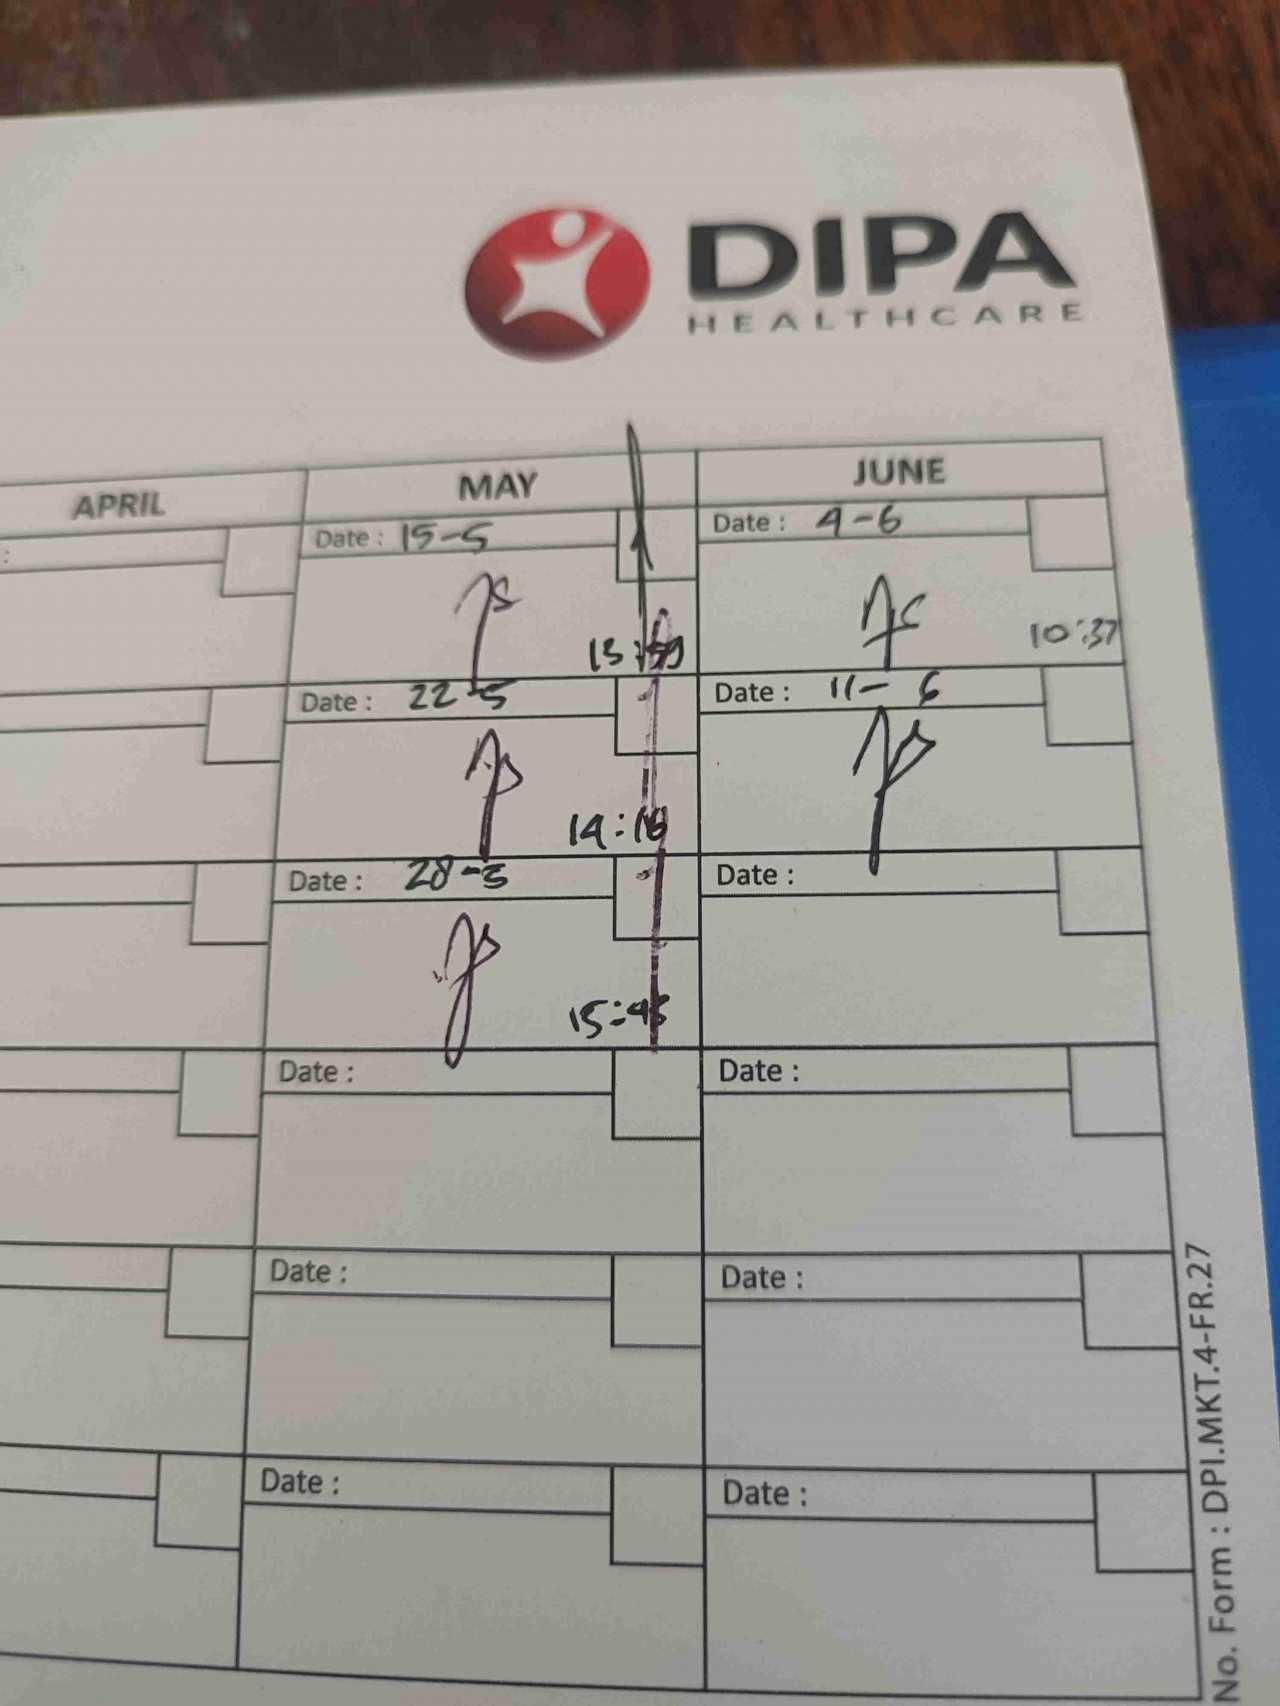 DIPA
HEALTHCARE
APRIL MAY JUNE
: Date : 15-5 Date : 4-6
10:37
Date : 22-5 Date : 11-6
14:16
Date : 28-5 Date :
15:45
Date : Date :
Date : Date :
Date : Date :
No. Form : DPI.MKT.4-FR.27